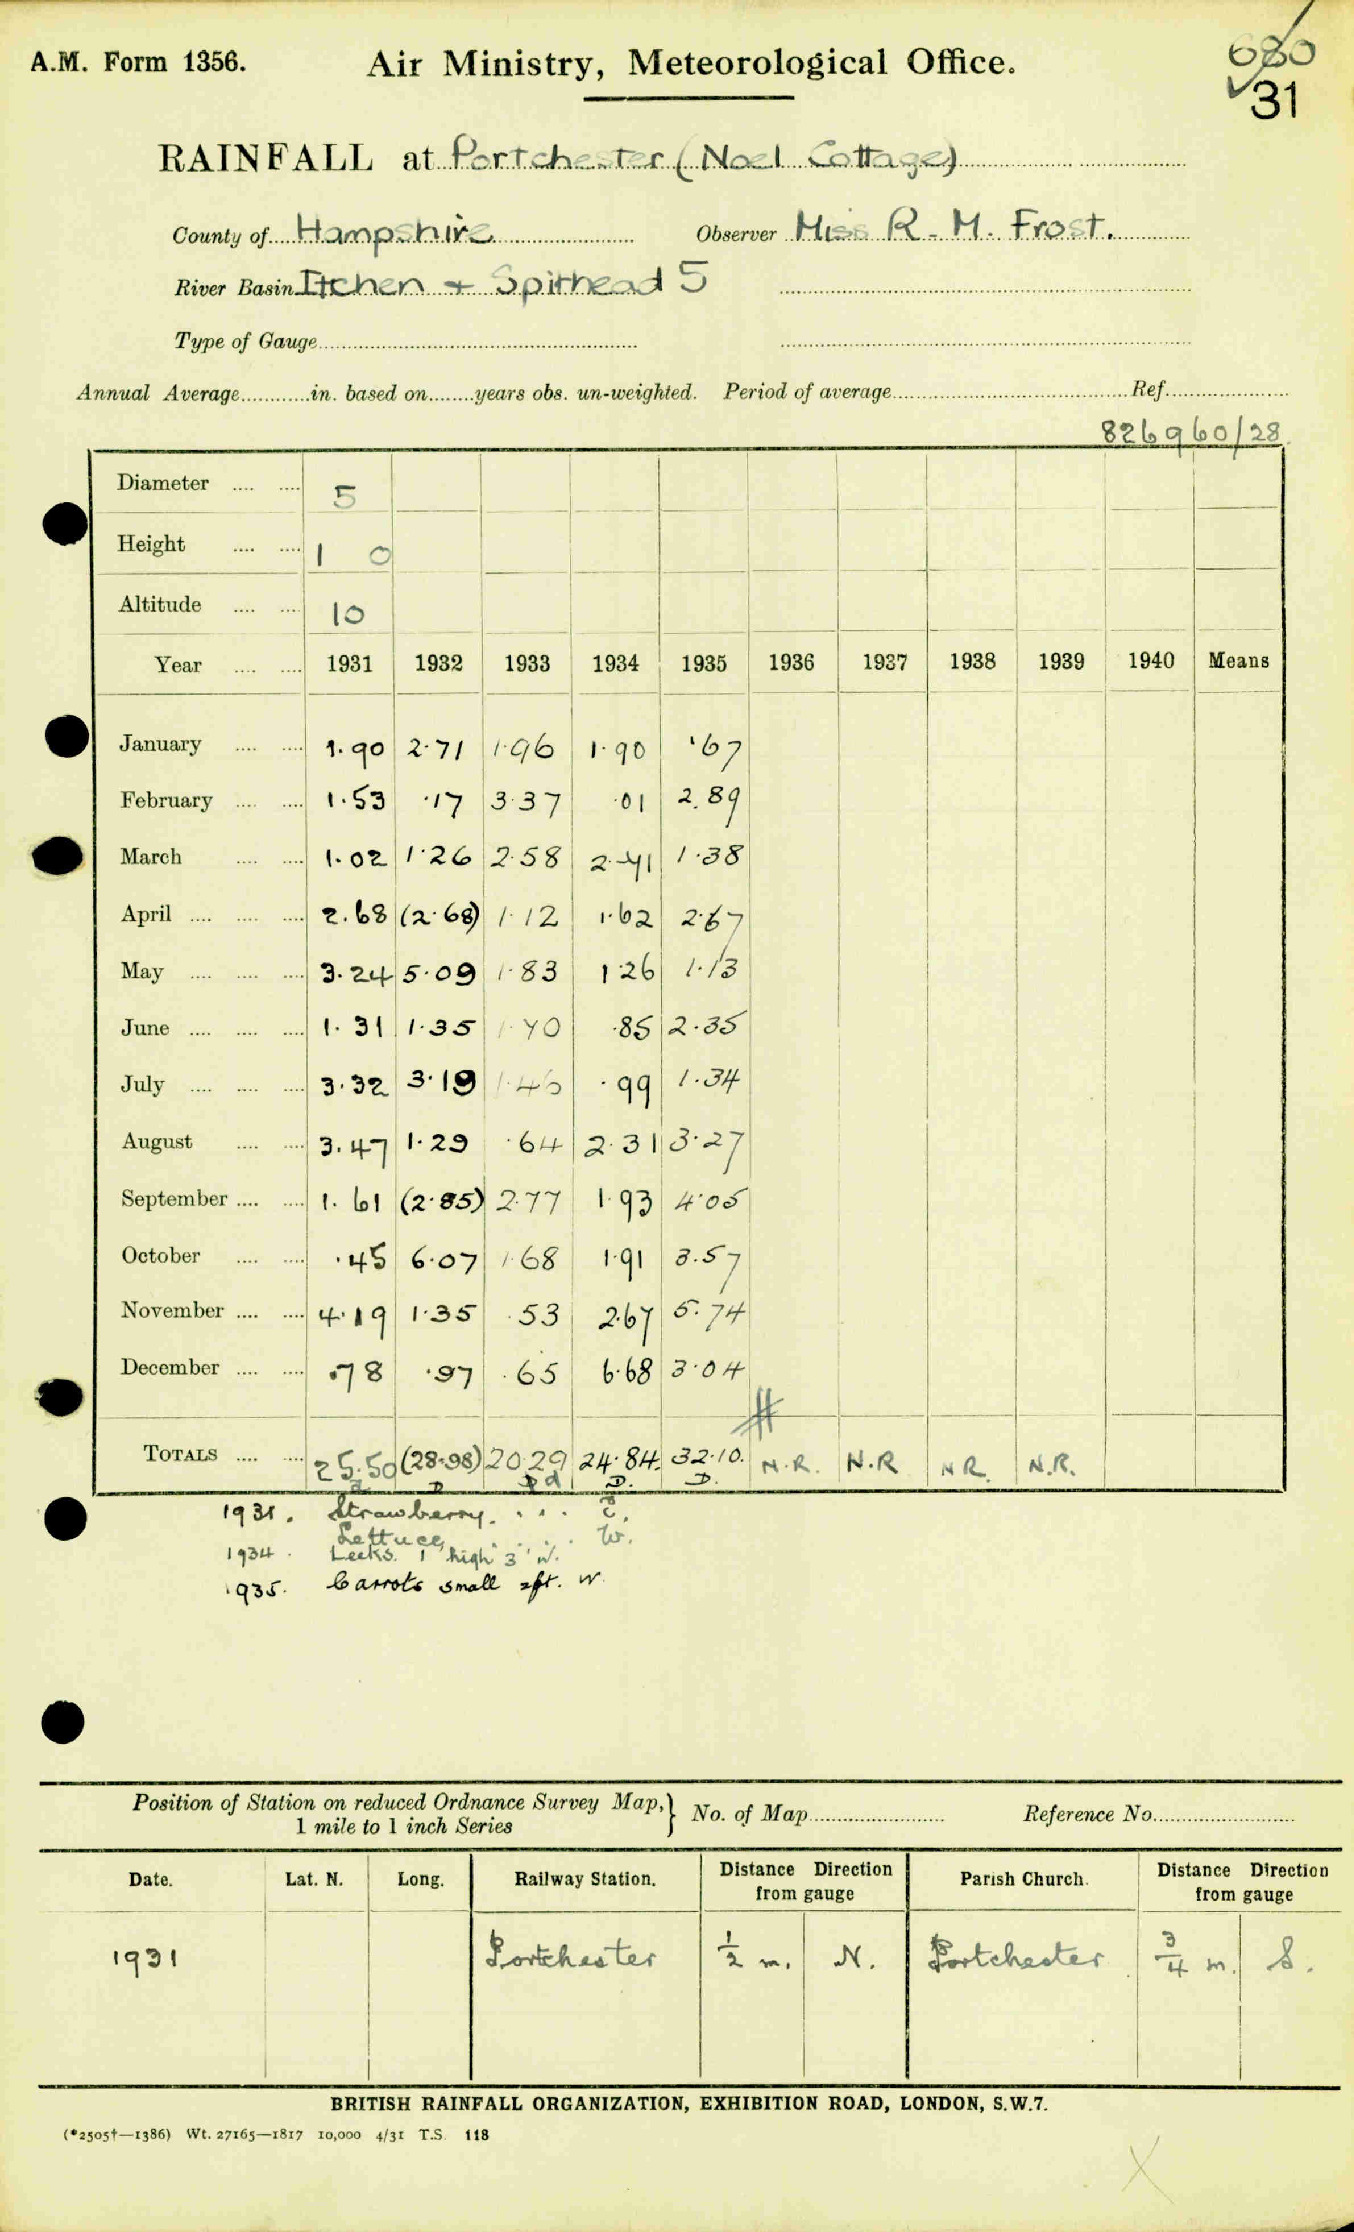 A.M. Form 1356.
Air Ministry, Meteorological Office.
680
31
RAINFALL at Portchester (Noel Cottage)
County of Hampshire Observer Miss R. M. Frost.
River Basin Itchen + Spithead 5
Type of Gauge
Annual Average in. based on years obs. un-weighted. Period of average Ref.
826960/28
Diameter 5
Height 1 0
Altitude 10
Year 1931 1932 1933 1934 1935 1936 1937 1938 1939 1940 Means
January 1.90 2.71 1.96 1.90 .67
February 1.53 .17 3.37 .01 2.89
March 1.02 1.26 2.58 2.41 1.38
April 2.68 (2.68) 1.12 1.62 2.67
May 3.24 5.09 1.83 1.26 1.13
June 1.31 1.35 1.70 .85 2.35
July 3.32 3.19 1.46 .99 1.34
August 3.47 1.29 .64 2.31 3.27
September 1.61 (2.85) 2.77 1.93 4.05
October .45 6.07 1.68 1.91 3.57
November 4.19 1.35 .53 2.67 5.74
December .78 .97 .65 6.68 3.04
TOTALS 25.50 (28.98) 20.29 24.84. 32.10. N.R. N.R N.R. N.R.
D D. D.
1931. Strawberry. . . .
Lettuce . . . W.
1934. Leeks. 1' high 3' W.
1935. Carrots small 2ft. W.
Position of Station on reduced Ordnance Survey Map, 1 mile to 1 inch Series } No. of Map Reference No.
Date. Lat. N. Long. Railway Station. Distance Direction from gauge Parish Church. Distance Direction from gauge
1931 Portchester 1/2 m. N. Portchester 3/4 m. S.
BRITISH RAINFALL ORGANIZATION, EXHIBITION ROAD, LONDON, S.W.7.
(*2505†—1386) Wt. 27165—1817 10,000 4/31 T.S. 118